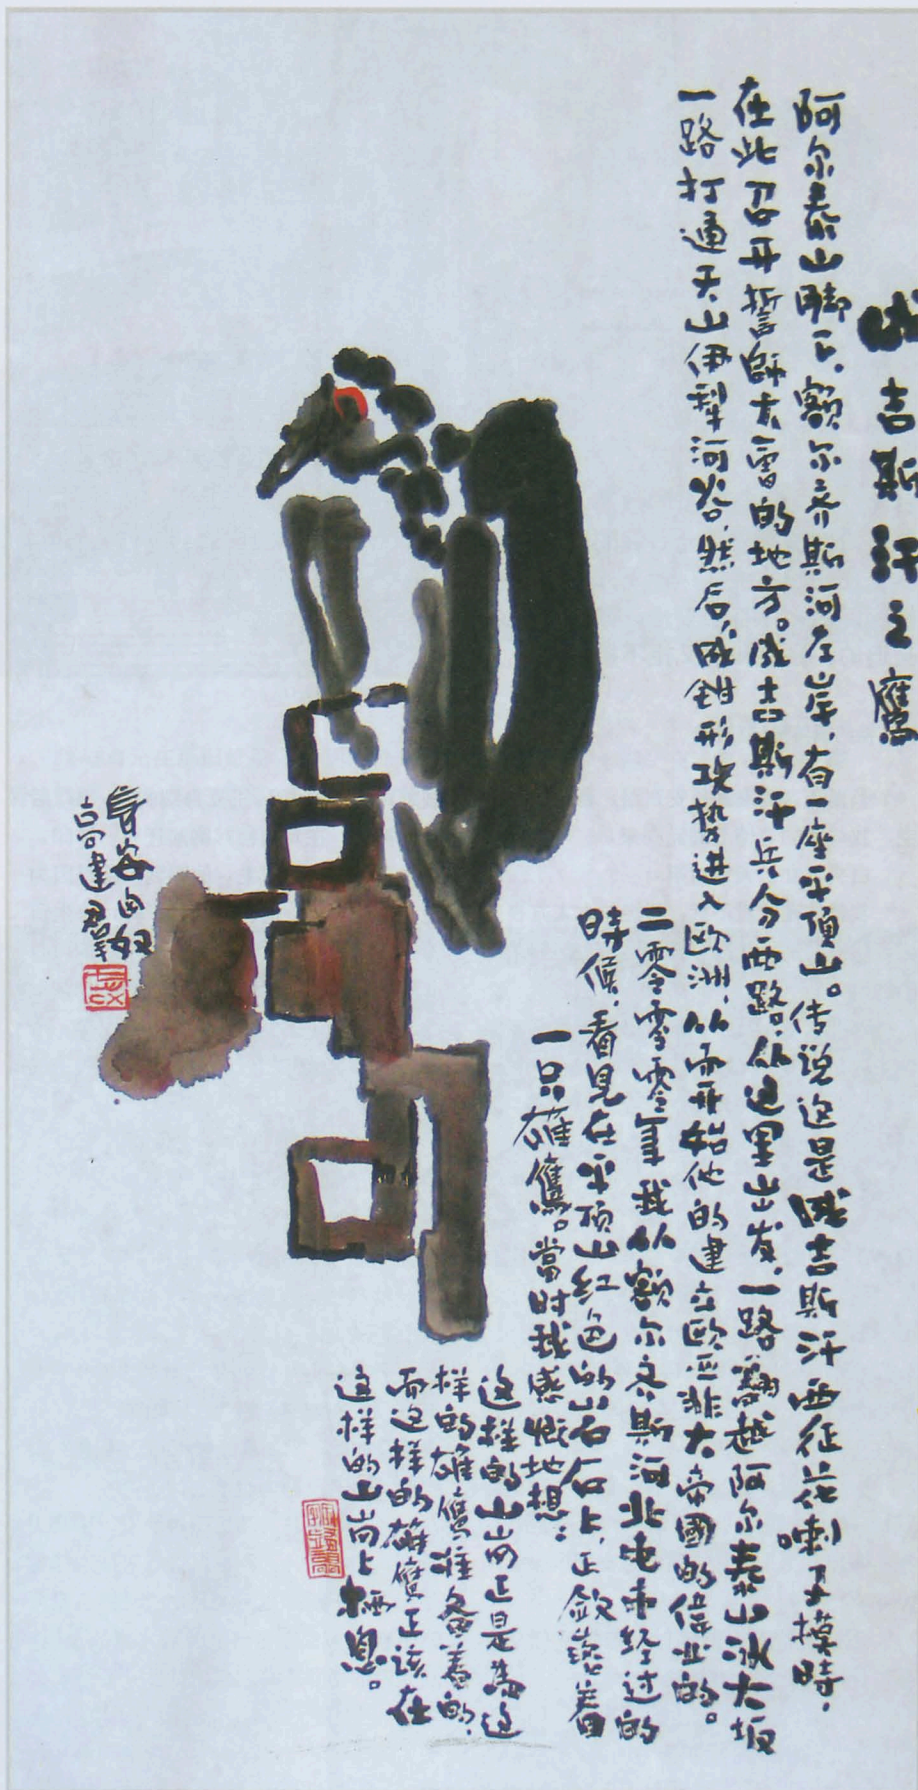 成吉斯汗之鷹
阿尔泰山脚下，额尔齐斯河左岸，有一座平顶山。传说这是成吉斯汗西征花喇子摸時，
在此召开誓師大會的地方。成吉斯汗兵分两路，从这里出发，一路翻越阿尔泰山冰大坂
一路打通天山伊犁河谷，然后，成鉗形攻势进入欧洲，从而开始他的建立欧亚非大帝國的偉业的。
二零零零年我从额尔齐斯河北屯市经过的
時候，看見在平顶山红色的岩石上，正敛翅着
一只雄鹰。當时我感慨地想：
这样的山岗正是為这
样的雄鹰准备着的，
而这样的雄鹰正该在
这样的山岗上栖息。
長安匈奴
高建羣